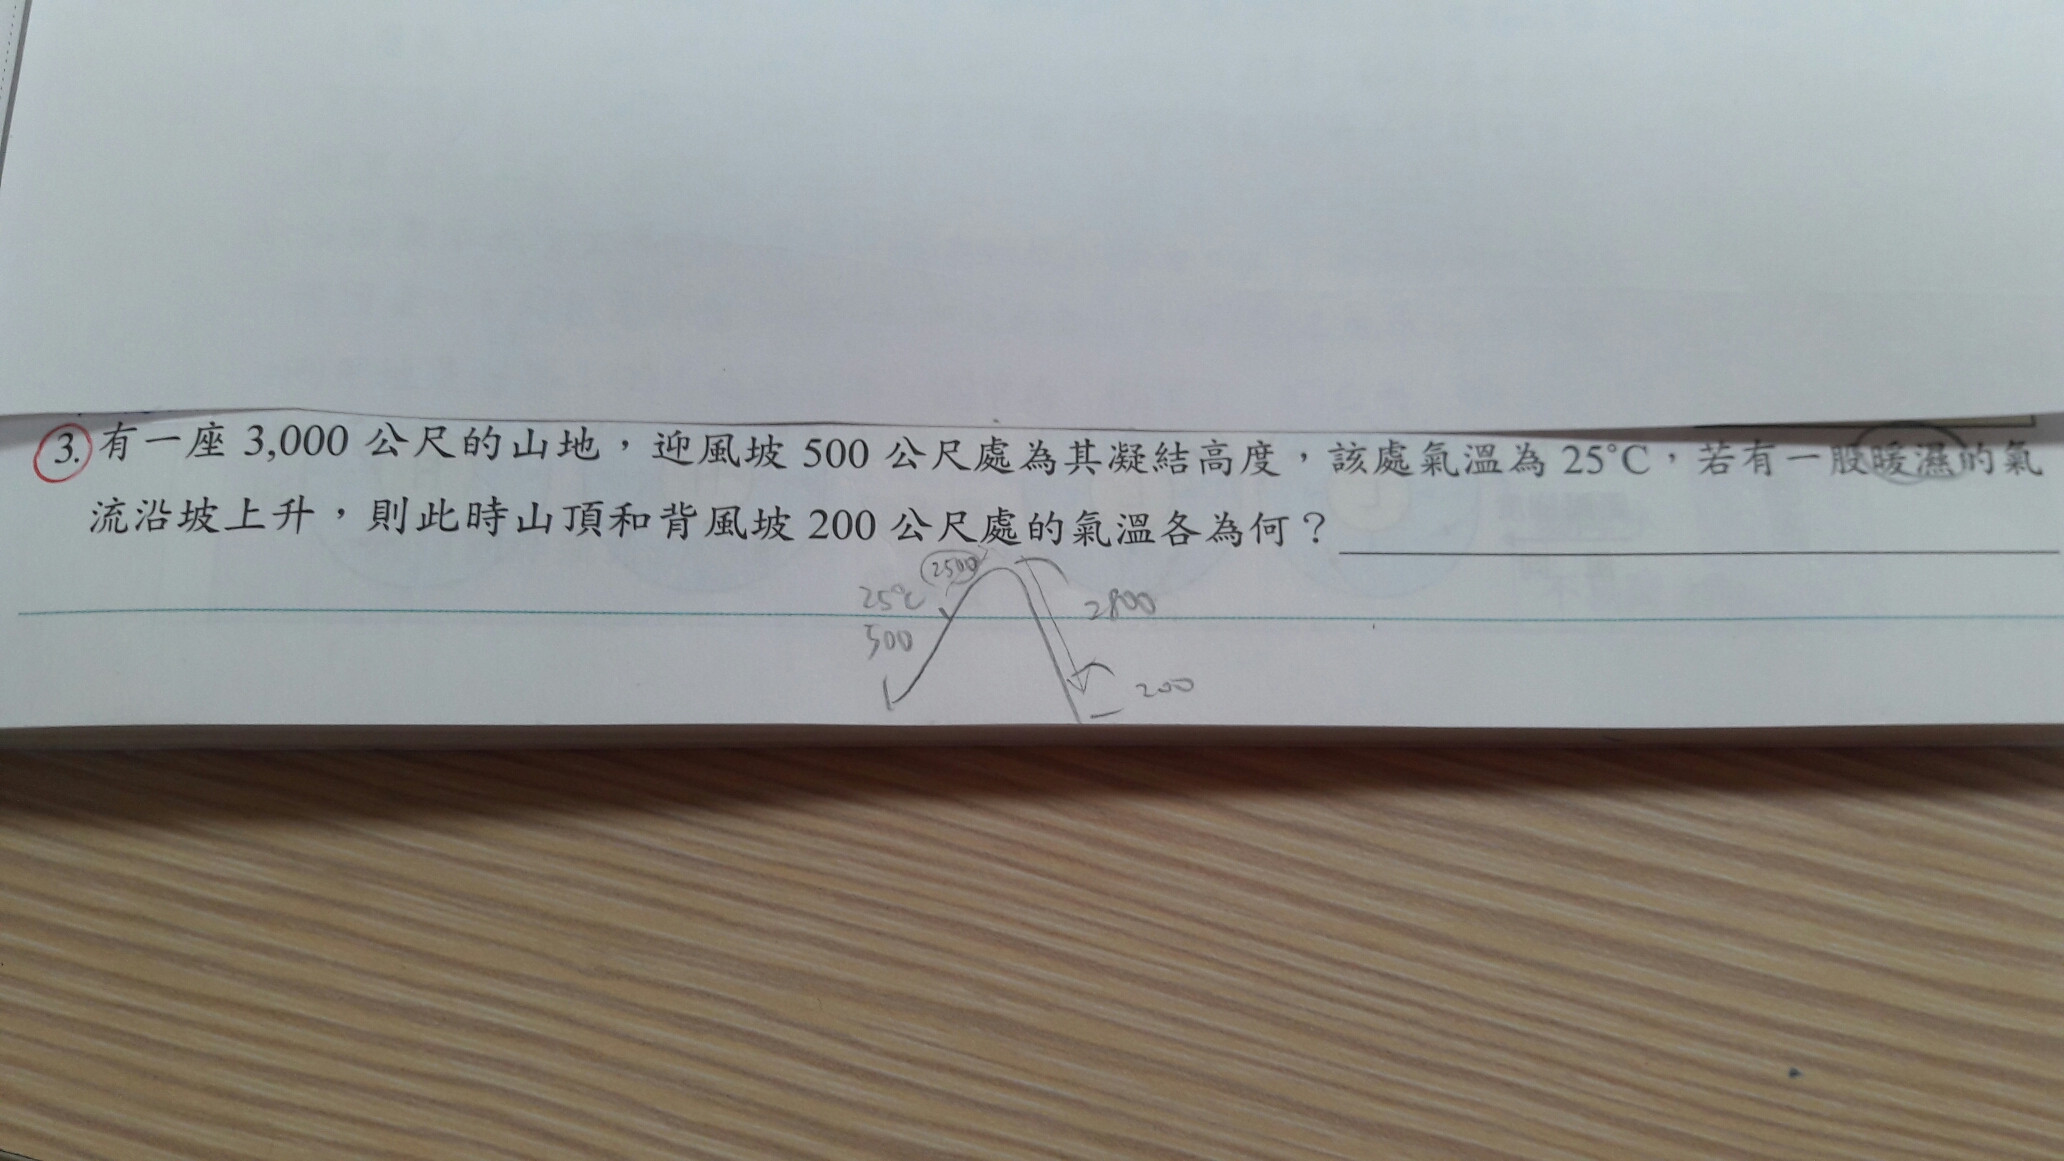 3. 有一座 3,000 公尺的山地，迎風坡 500 公尺處為其凝結高度，該處氣溫為 25°C，若有一股暖濕的氣
流沿坡上升，則此時山頂和背風坡 200 公尺處的氣溫各為何？
2500
25°C
2800
500
200